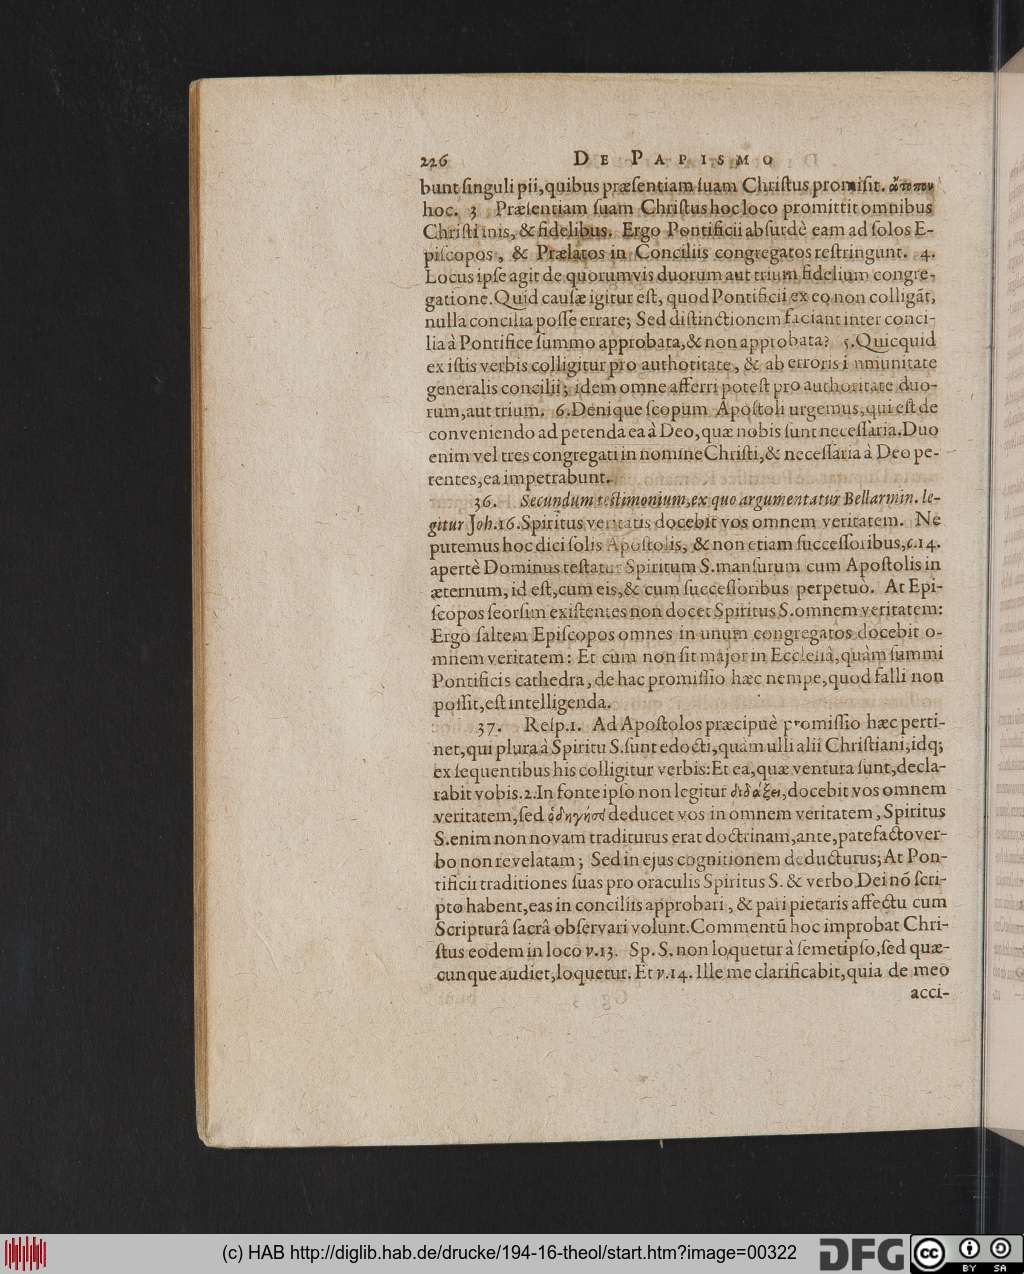 226 DE PAPISMO
bunt ſinguli pii, quibus præſentiam ſuam Chriſtus promiſit. ἄτοπον
hoc. 3 Præſentiam ſuam Chriſtus hoc loco promittit omnibus
Chriſtianis, & fidelibus. Ergo Pontificii abſurdè eam ad ſolos E-
piſcopos, & Prælatos in Conciliis congregatos reſtringunt. 4.
Locus ipſe agit de quorumvis duorum aut trium fidelium congre-
gatione. Quid cauſæ igitur eſt, quod Pontificii ex eo non colligāt,
nulla concilia poſſe errare; Sed diſtinctionem faciant inter conci-
lia à Pontifice ſummo approbata, & non approbata? 5. Quicquid
ex iſtis verbis colligitur pro authoritate, & ab erroris immunitate
generalis concilii; idem omne afferri poteſt pro authoritate duo-
rum, aut trium. 6. Denique ſcopum Apoſtoli urgemus, qui eſt de
conveniendo ad petenda ea à Deo, quæ nobis ſunt neceſſaria. Duo
enim vel tres congregati in nomine Chriſti, & neceſſaria à Deo pe-
tentes, ea impetrabunt.
36. Secundum teſtimonium, ex quo argumentatur Bellarmin. le-
gitur Joh. 16. Spiritus veritatis docebit vos omnem veritatem. Ne
putemus hoc dici ſolis Apoſtolis, & non etiam ſucceſſoribus, c. 14.
apertè Dominus teſtatur Spiritum S. manſurum cum Apoſtolis in
æternum, id eſt, cum eis, & cum ſucceſſoribus perpetuo. At Epi-
ſcopos ſeorſim exiſtentes non docet Spiritus S. omnem veritatem:
Ergo ſaltem Epiſcopos omnes in unum congregatos docebit o-
mnem veritatem: Et cùm non ſit major in Eccleſiâ, quàm ſummi
Pontificis cathedra, de hac promiſſio hæc nempe, quod falli non
poſſit, eſt intelligenda.
37. Reſp. 1. Ad Apoſtolos præcipuè promiſſio hæc perti-
net, qui plura à Spiritu S. ſunt edocti, quàm ulli alii Chriſtiani, idq;
ex ſequentibus his colligitur verbis: Et ea, quæ ventura ſunt, decla-
rabit vobis. 2. In fonte ipſo non legitur διδάξει, docebit vos omnem
veritatem, ſed ὁδηγήσει deducet vos in omnem veritatem, Spiritus
S. enim non novam traditurus erat doctrinam, ante, patefacto ver-
bo non revelatam; Sed in ejus cognitionem deducturus; At Pon-
tificii traditiones ſuas pro oraculis Spiritus S. & verbo Dei nō ſcri-
pto habent, eas in conciliis approbari, & pari pietatis affectu cum
Scripturâ ſacrâ obſervari volunt. Commentū hoc improbat Chri-
ſtus eodem in loco v. 13. Sp. S. non loquetur à ſemetipſo, ſed quæ-
cunque audiet, loquetur. Et v. 14. Ille me clarificabit, quia de meo
acci-
(c) HAB http://diglib.hab.de/drucke/194-16-theol/start.htm?image=00322
DFG cc BY SA